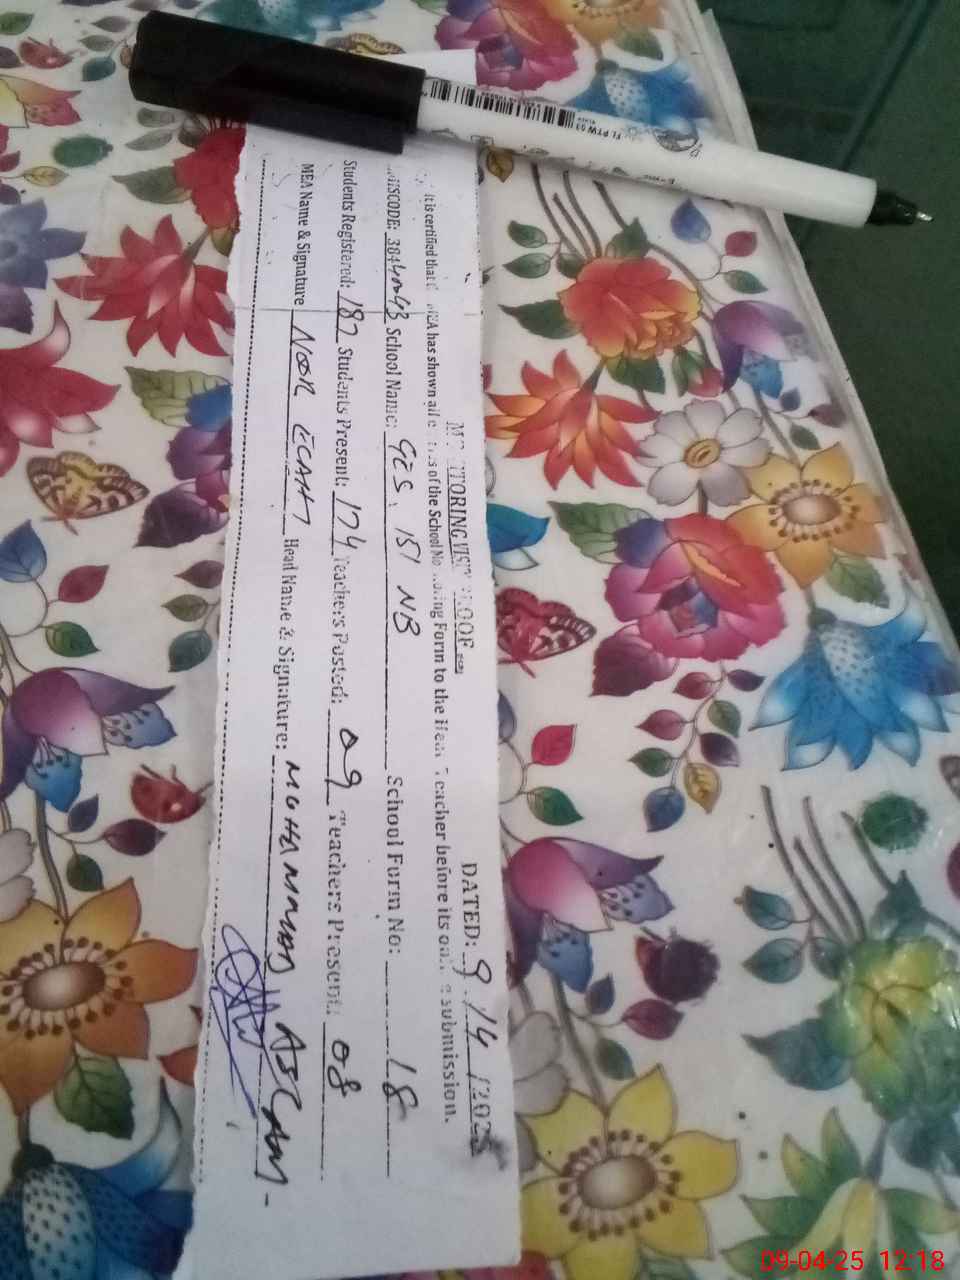 MONITORING VISIT PROOF
DATED: 9/4/2025
It is certified that MEA has shown all of the School Monitoring Form to the Head Teacher before its submission.
SCODE: School Name: GES. 151 NB School Form No: 18
Students Registered: 187 Students Present: 174 Teachers Posted: 09 Teachers Present: 08
MEA Name & Signature NOOR Head Name & Signature: MOHAMMAD
FLPTW 03
09-04-25 12:18